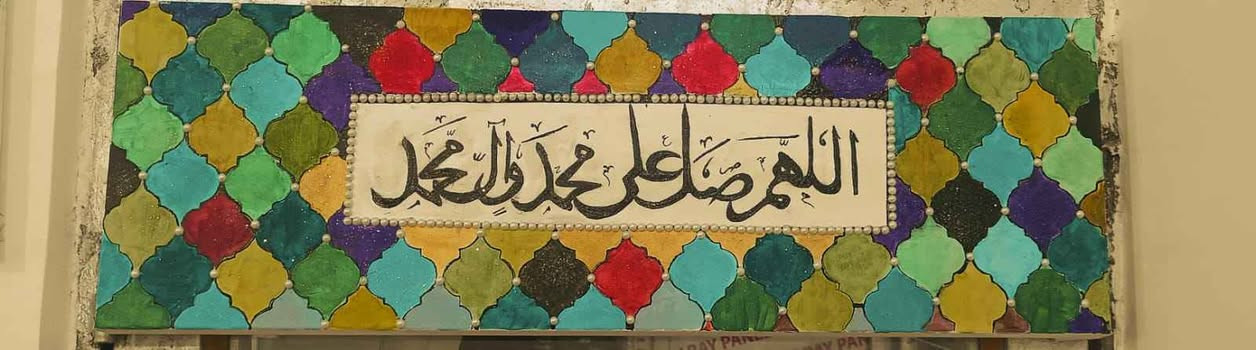 اللهم صل على محمد وآل محمد
RAY PANEL
RAY PAN